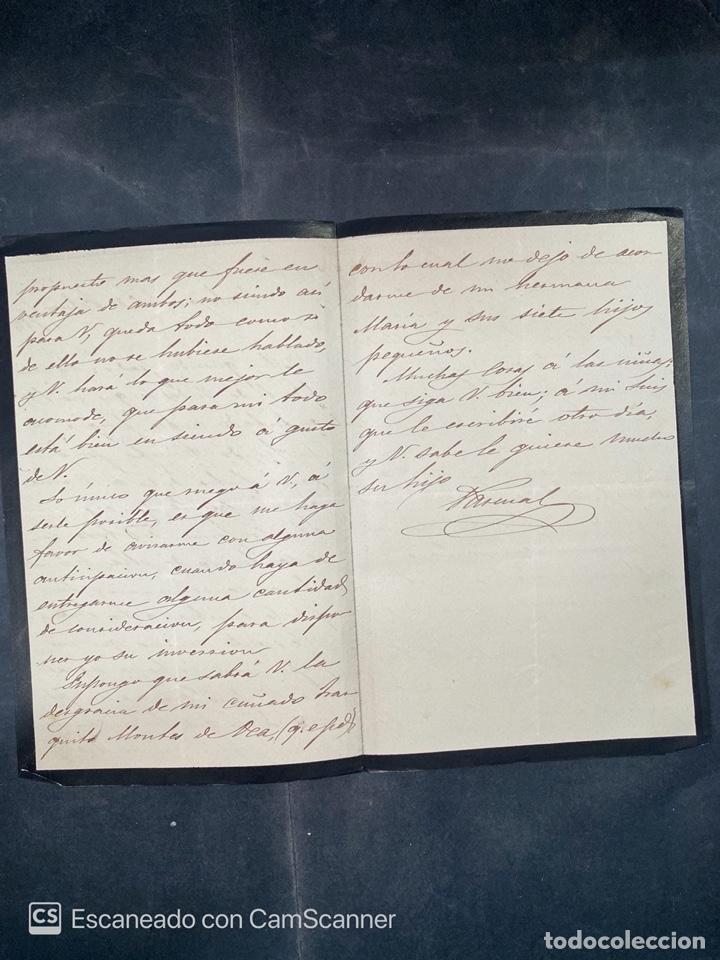 propuesto mas que fuese en
ventaja de ambos; no siendo así
para V, queda todo como si
de ello no se hubiese hablado,
y V. hará lo que mejor le
acomode, que para mi todo
está bien en siendo á gusto
de V.
Lo único que ruego á V, á
serle posible, es que me haga
favor de avisarme con alguna
anticipacion, cuando haya de
entregarme alguna cantidad
de consideracion, para dispo-
ner yo su inversion
Supongo que sabrá V. la
desgracia de mi cuñado Fras
quito Montes de Oca, (q e p d)
con lo cual no dejo de acor
darme de mi hermana
María y sus siete hijos
pequeños.
Muchas cosas á las niñas;
que siga V. bien; á mi Luis
que le escribiré otro día,
y V. sabe le quiere mucho
su hijo
Pascual
CS Escaneado con CamScanner
todocoleccion